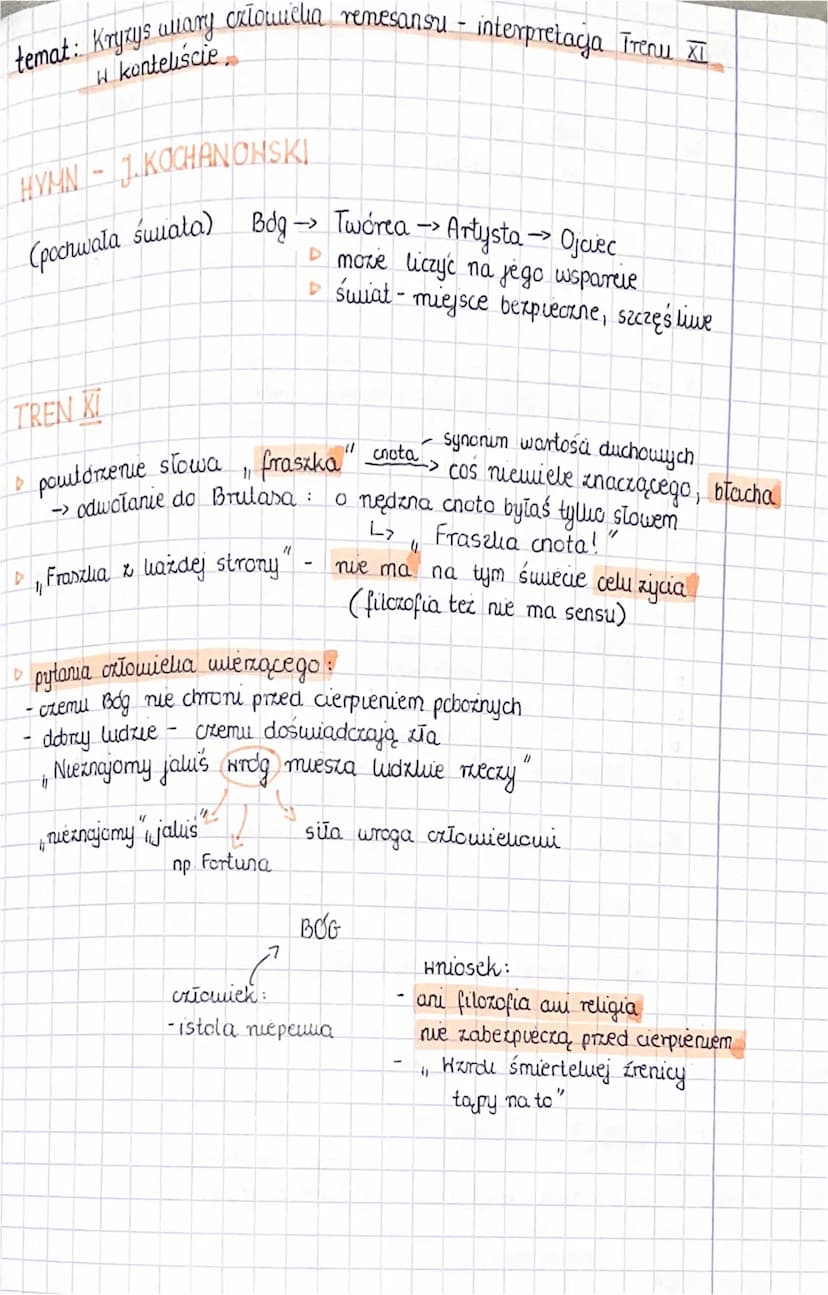 temat: Kryzys wiary człowieka renesansu - interpretacja Trenu XI
w kontekście.
HYMN - J. KOCHANOWSKI
(pochwała świata) Bóg → Twórca → Artysta → Ojciec
▷ może liczyć na jego wsparcie
▷ świat - miejsce bezpieczne, szczęśliwe
TREN XI
▷ powtórzenie słowa „fraszka" cnota synonim wartości duchowych
→ coś niewiele znaczącego, błacha
→ odwołanie do Brutasa : o nędzna cnoto byłaś tylko słowem
↳ „Fraszka cnota!"
▷ „Fraszka z każdej strony" - nie ma na tym świecie celu życia
(filozofia też nie ma sensu)
▷ pytania człowieka wierzącego:
- czemu Bóg nie chroni przed cierpieniem pobożnych
- dobrzy ludzie - czemu doświadczają zła
„Nieznajomy jakiś wróg miesza ludzkie rzeczy"
„nieznajomy" „jakiś" siła wroga człowiekowi
np Fortuna
BÓG
człowiek:
- istota niepewna
wniosek:
- ani filozofia ani religia
nie zabezpieczą przed cierpieniem
- „Wzrok śmiertelnej źrenicy
tępy na to"